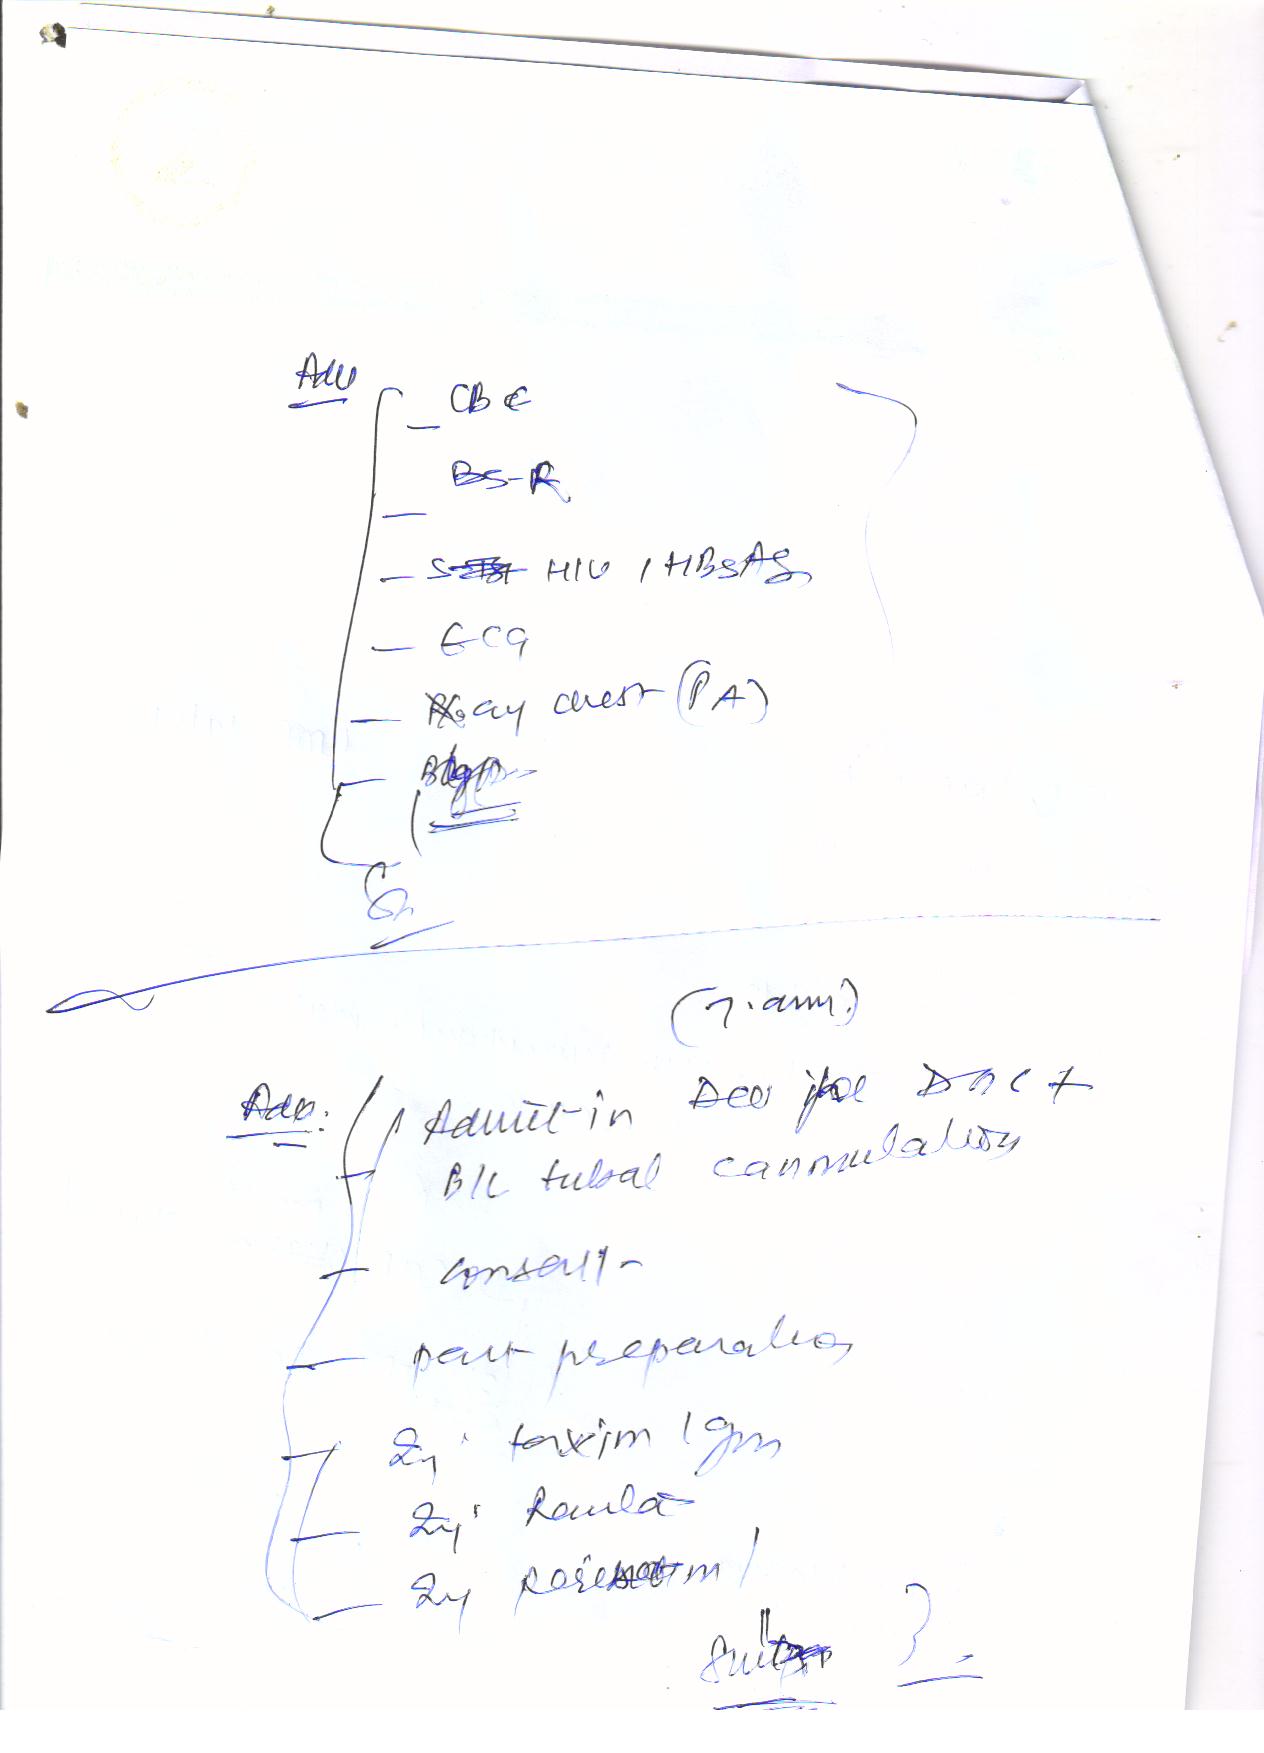 Adv
CBC
BS-R
HIV / HBsAg
ECG
Xray chest (PA)
(7.am)
Adv:
Admit-in for DNC +
B/L tubal cannulation
consent-
part preparation
Inj. taxim 1gm
Inj. Ranta
Inj